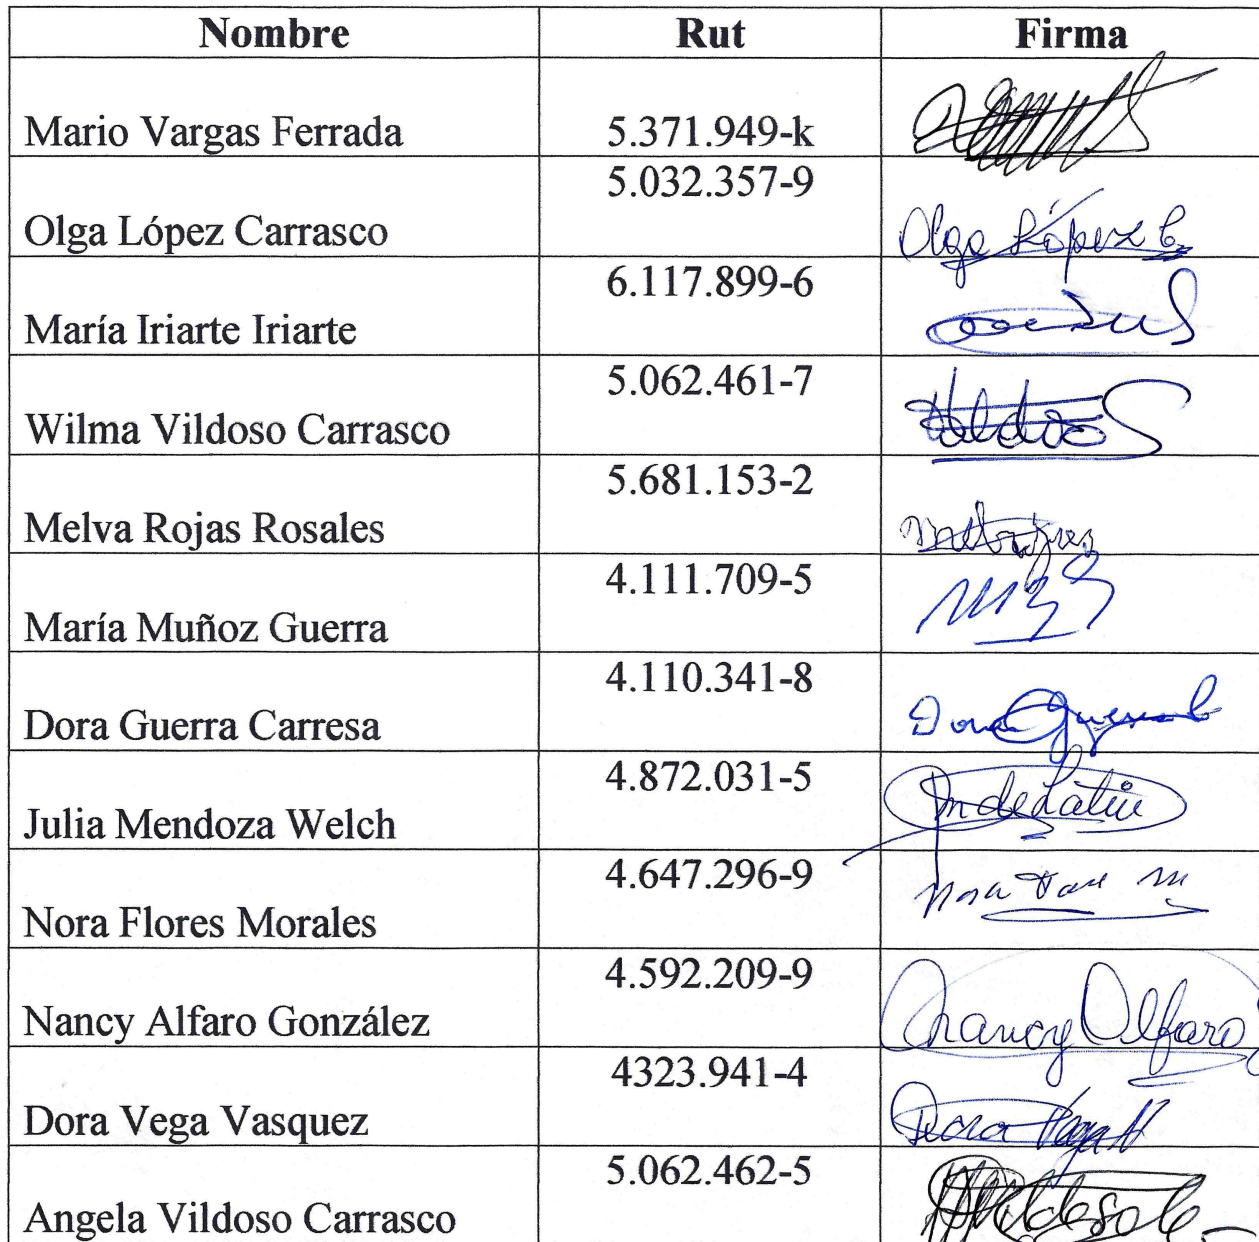 Nombre Rut Firma
Mario Vargas Ferrada 5.371.949-k
Olga López Carrasco 5.032.357-9 Olga López C
María Iriarte Iriarte 6.117.899-6
Wilma Vildoso Carrasco 5.062.461-7
Melva Rojas Rosales 5.681.153-2
María Muñoz Guerra 4.111.709-5
Dora Guerra Carresa 4.110.341-8 Dora Guerra C
Julia Mendoza Welch 4.872.031-5
Nora Flores Morales 4.647.296-9 Nora
Nancy Alfaro González 4.592.209-9 Nancy Alfaro
Dora Vega Vasquez 4323.941-4 Dora Vega V
Angela Vildoso Carrasco 5.062.462-5